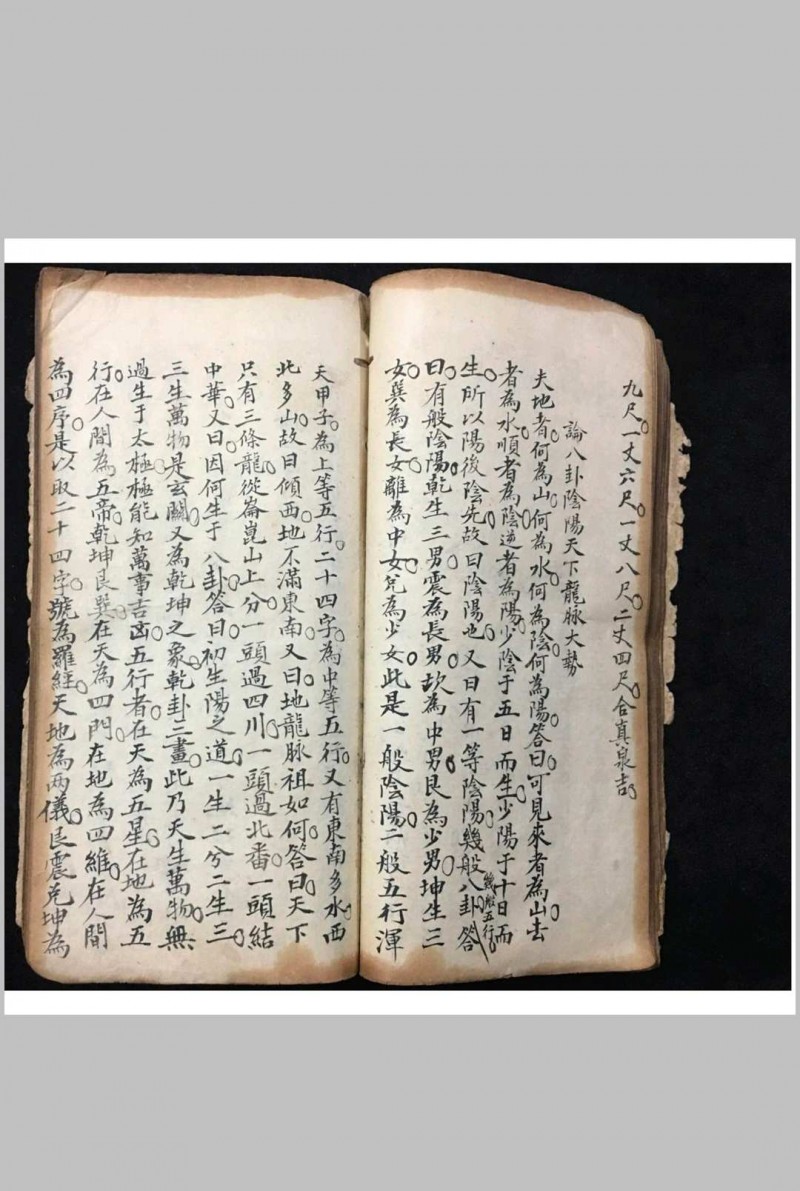 九尺。一丈六尺。一丈八尺。二丈四尺。合真泉吉。
論八卦陰陽天下龍脉大勢
夫地者。何為山。何為水。何為陰。何為陽。答曰。可見來者為山。去
者為水。順者為陰。逆者為陽。少陰于五日而生。少陽于十日而
生。所以陽後陰先。故曰陰陽也。又曰有一等陰陽。幾般八卦。幾般五行。答
曰。有般陰陽。乾生三男。震為長男。坎為中男。艮為少男。坤生三
女。巽為長女。離為中女。兌為少女。此是一般陰陽。二般五行。渾
天甲子。為上等五行。二十四字。為中等五行。又有東南多水。西
北多山。故曰傾西。地不滿東南。又曰。地龍脉祖如何。答曰。天下
只有三條龍。從崙崑山上分。一頭過四川。一頭過北番。一頭結
中華。又曰。因何生于八卦。答曰。初生陽之道。一生二兮二生三。
三生萬物。是玄關。又為乾坤之象。乾卦三畫。此乃天生萬物。無
過生于太極。極能知萬事吉凶。五行者。在天為五星。在地為五
行。在人間為五帝。乾坤艮巽。在天為四門。在地為四維。在人間
為四序。是以取二十四字。號為羅經。天地為兩儀。艮震兌坤為